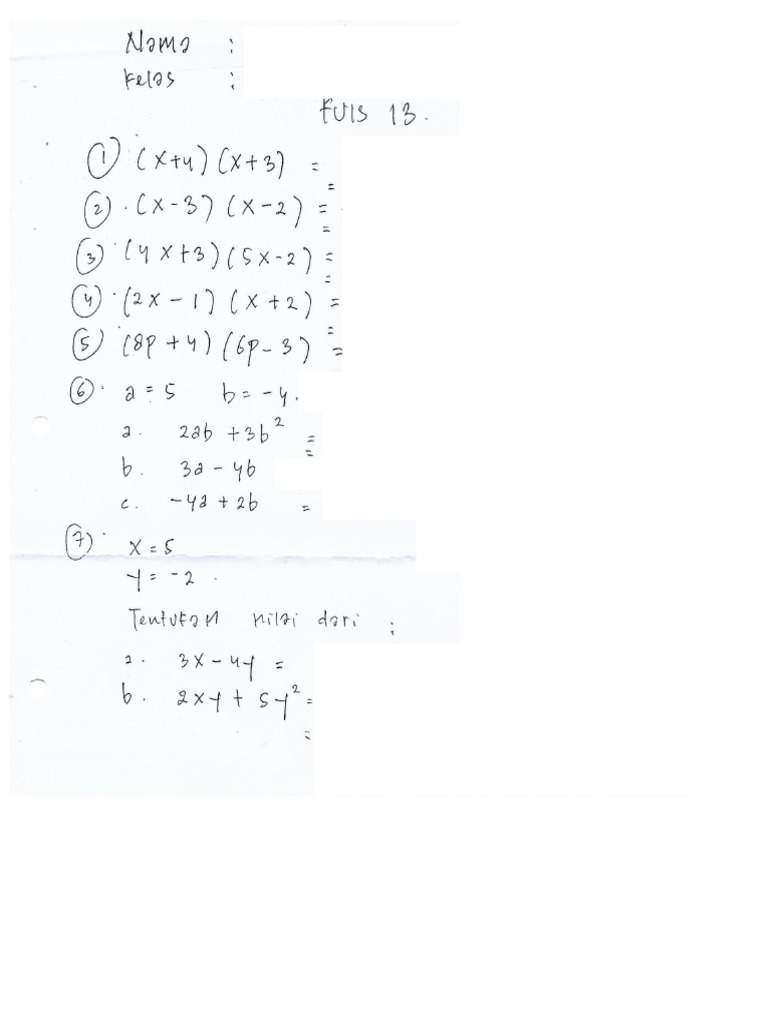 Nama :
Kelas :
KUIS 13.
① (x+4) (x+3) =
=
② . (x-3) (x-2) =
=
③ . (4x+3) (5x-2) =
=
④ . (2x-1) (x+2) =
=
⑤ . (8p+4) (6p-3) =
⑥ . a = 5 b = -4.
a. 2ab + 3b² =
=
b. 3a - 4b
c. -4a + 2b =
⑦ . x = 5
y = -2 .
Tentukan nilai dari :
a. 3x - 4y =
b. 2xy + 5y² =
=